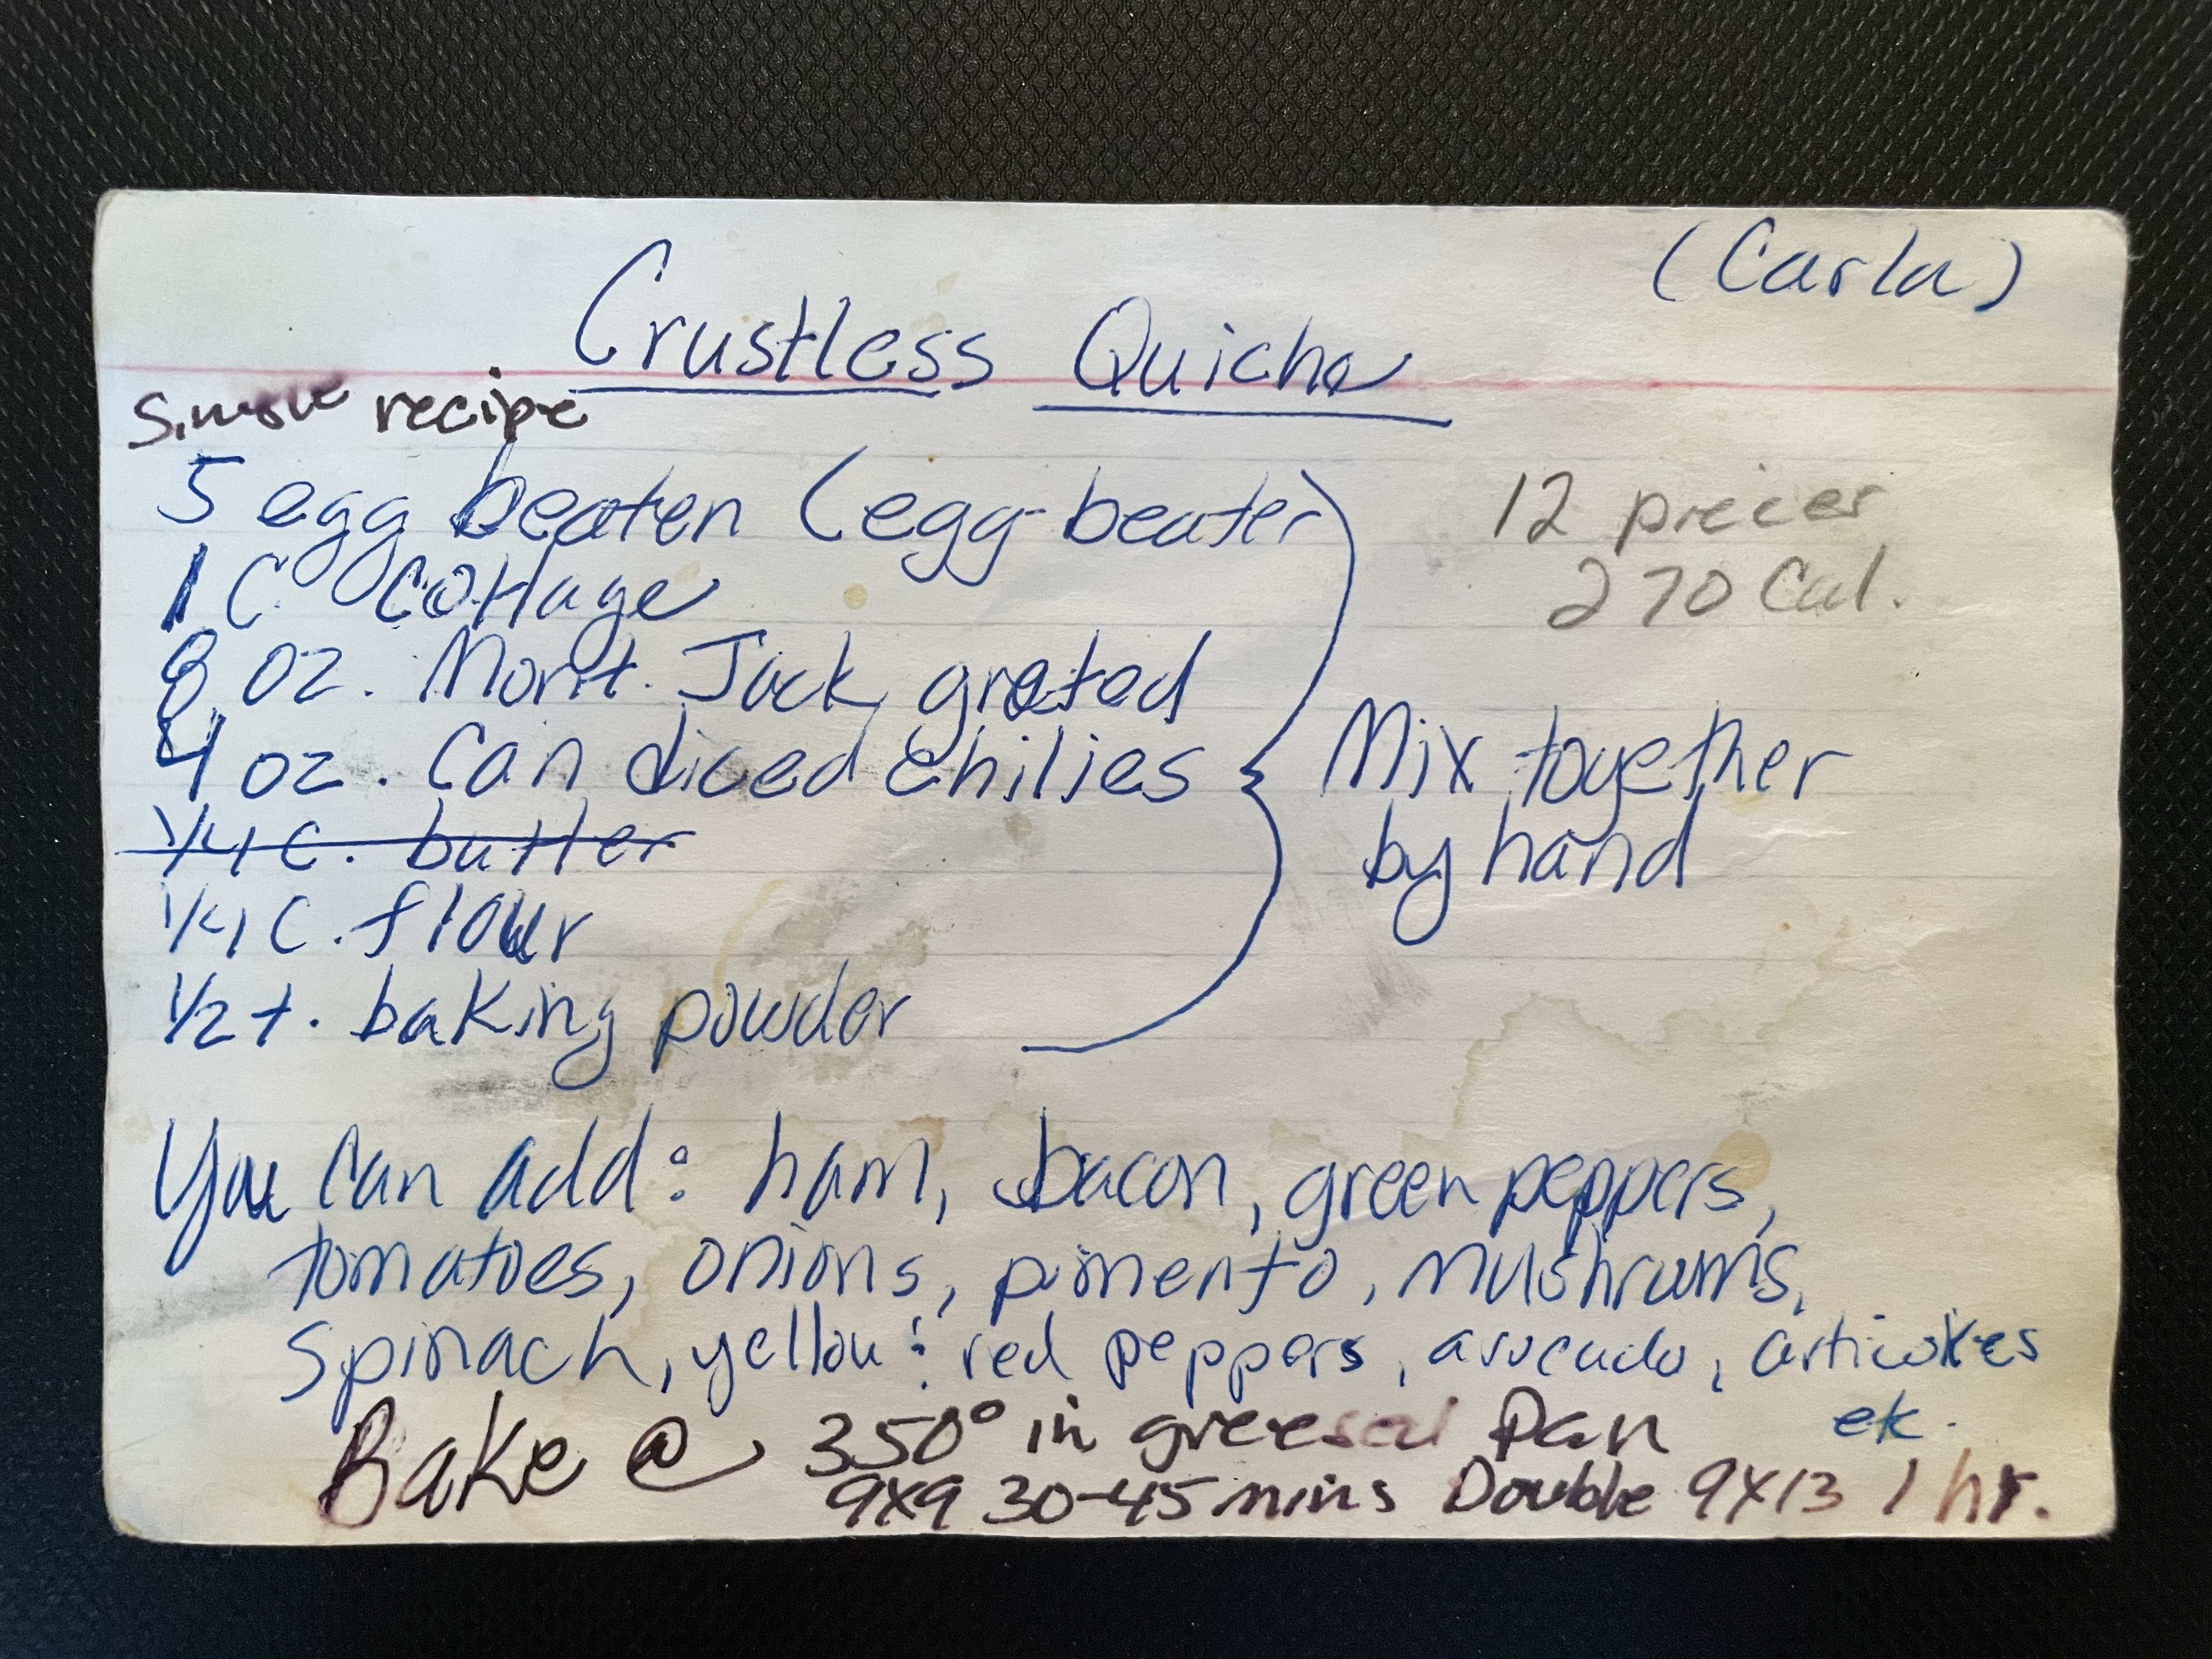 (Carla)
Crustless Quiche
recipe
5 egg beaten (egg-beater)
12 pieces
1 C cottage
270 Cal.
8 oz. Mont. Jack, grated
4 oz. can diced chilies
Mix together
1/4 C. butter
by hand
1/4 C. flour
1/2 t. baking powder
You can add: ham, bacon, green peppers,
tomatoes, onions, pimento, mushrums,
spinach, yellow : red peppers, avocado, articokes
Bake @ 350° in greesed Pan
etc.
9x9 30-45 mins Double 9x13 1 hr.